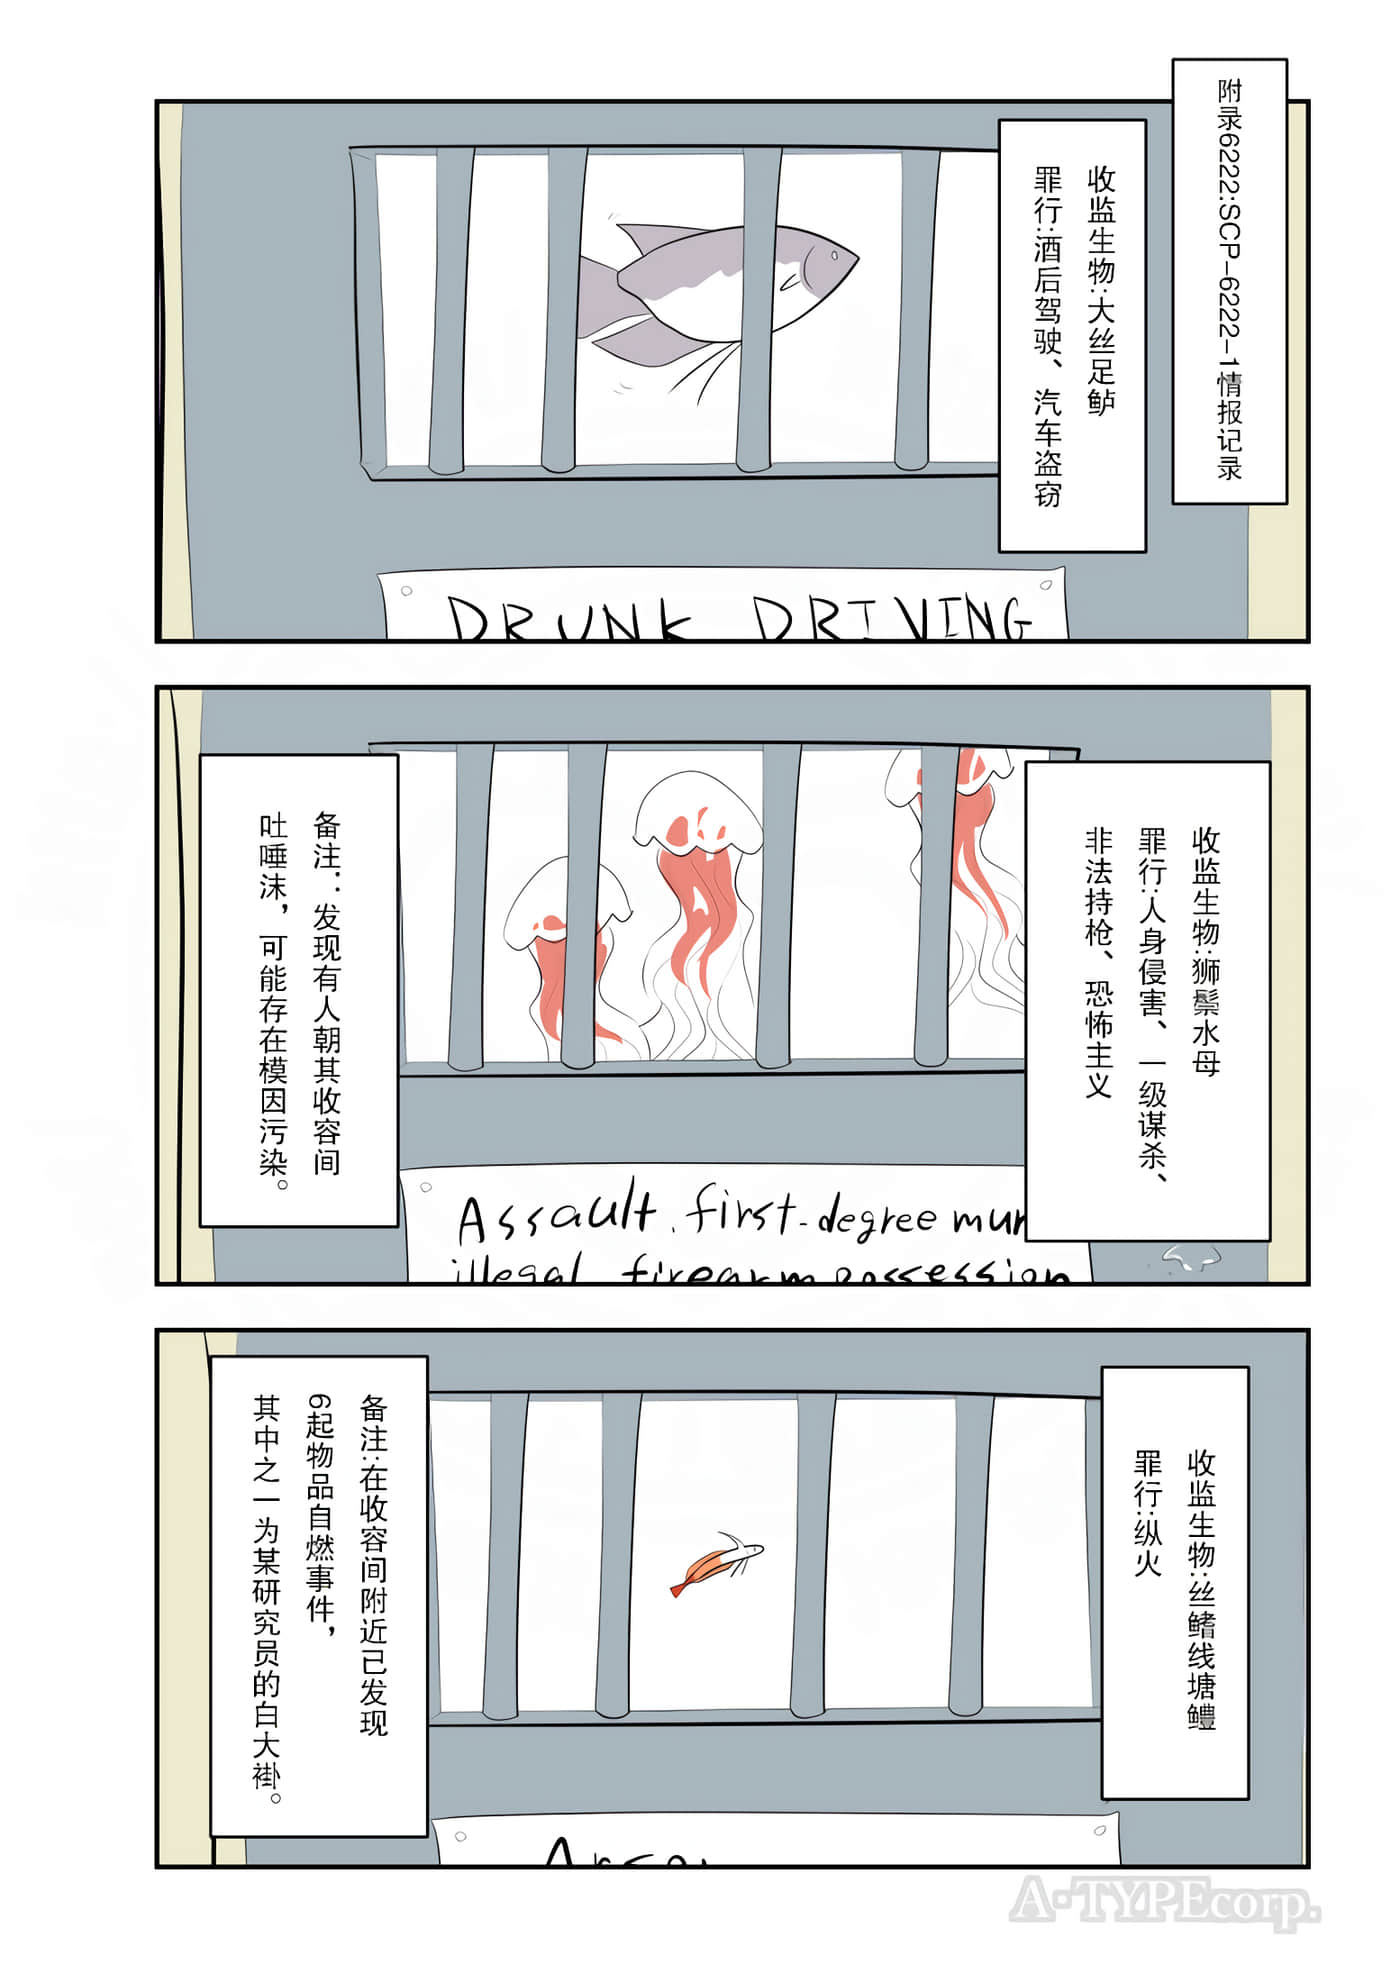 附录6222:SCP-6222-1情报记录
收监生物:大丝足鲈
罪行:酒后驾驶、汽车盗窃
DRUNK DRIVING
收监生物:狮鬃水母
罪行:人身侵害、一级谋杀、
非法持枪、恐怖主义
备注:发现有人朝其收容间
吐唾沫，可能存在模因污染。
Assault, first-degree mur
illegal firearm possession
收监生物:丝鳍线塘鳢
罪行:纵火
备注:在收容间附近已发现
6起物品自燃事件，
其中之一为某研究员的白大褂。
Arson
A-TYPEcorp.